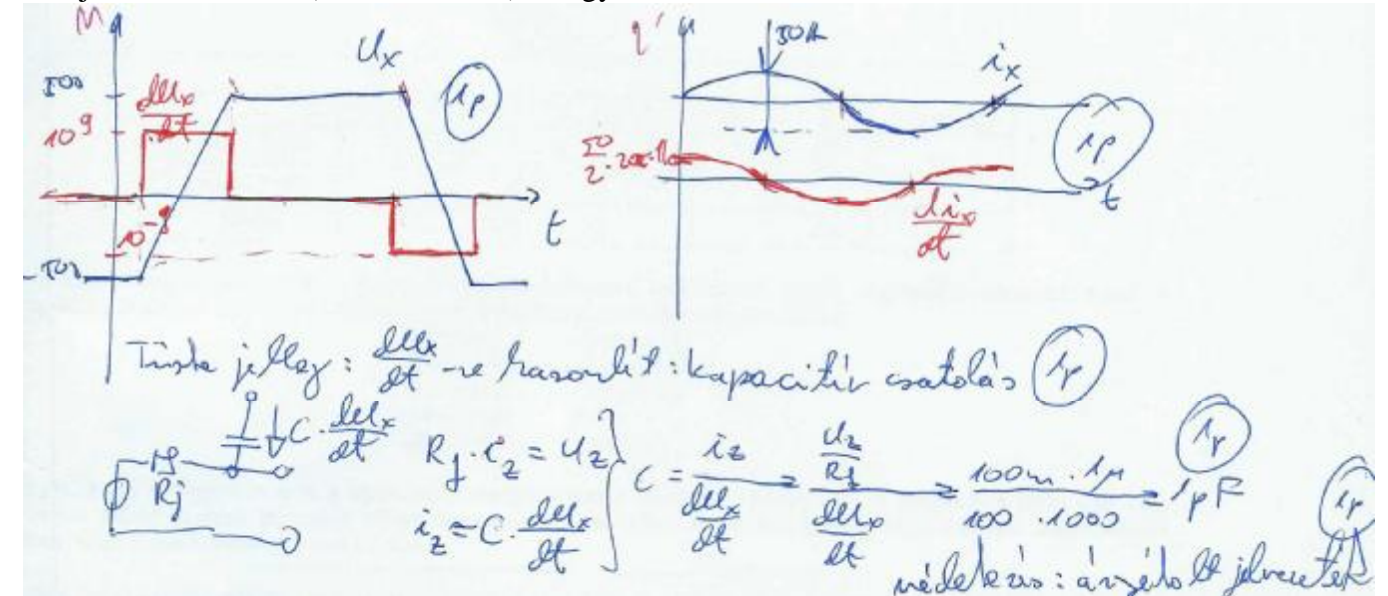 u_x
1p
500
du_x/dt
10^9
10^-9
t
-500
50A
i_x
1p
di_x/dt
t
Tiszta jelleg: du_x/dt -re hasonlít: kapacitív csatolás 1p
C · du_x/dt
R_j
R_j · i_z = u_z
i_z = C · du_x/dt
C = i_z / (du_x/dt) = (u_z/R_j) / (du_x/dt) = (100m · 1µ) / (100 · 1000) = 1pF 1p
védekezés: árnyékolt jelvezeték 1p